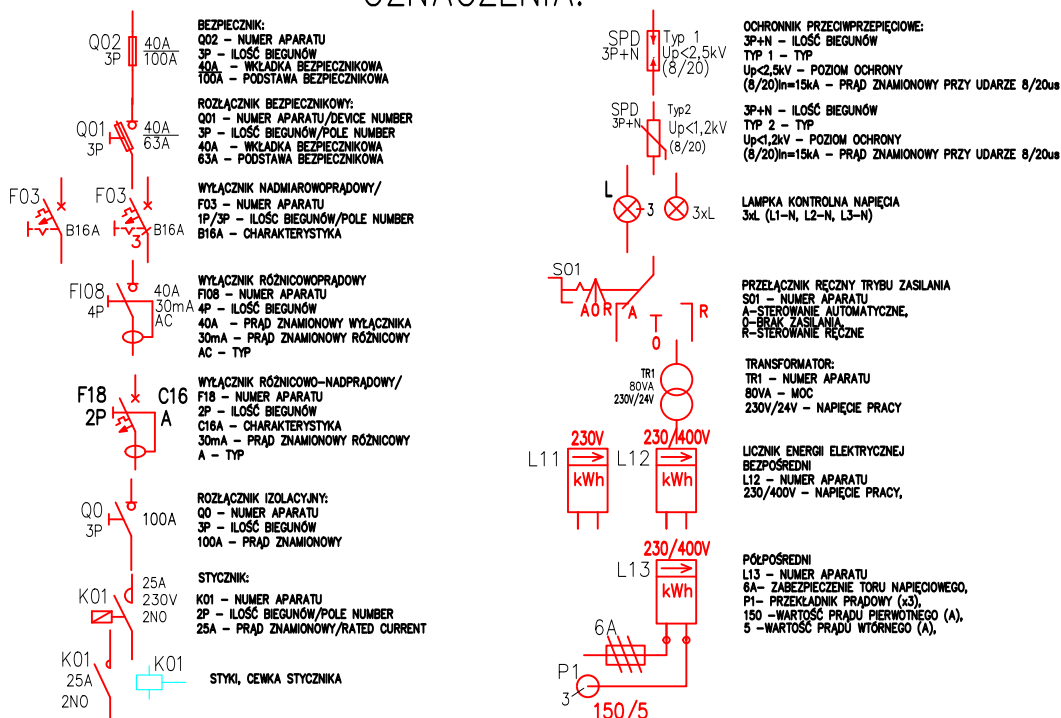 OZNACZENIA:
Q02
3P
40A
100A
BEZPIECZNIK:
Q02 – NUMER APARATU
3P – ILOŚĆ BIEGUNÓW
40A – WKŁADKA BEZPIECZNIKOWA
100A – PODSTAWA BEZPIECZNIKOWA
Q01
3P
40A
63A
ROZŁĄCZNIK BEZPIECZNIKOWY:
Q01 – NUMER APARATU/DEVICE NUMBER
3P – ILOŚĆ BIEGUNÓW/POLE NUMBER
40A – WKŁADKA BEZPIECZNIKOWA
63A – PODSTAWA BEZPIECZNIKOWA
F03
B16A
F03
3
B16A
WYŁĄCZNIK NADMIAROWOPRĄDOWY/
F03 – NUMER APARATU
1P/3P – ILOŚĆ BIEGUNÓW/POLE NUMBER
B16A – CHARAKTERYSTYKA
FI08
4P
40A
30mA
AC
WYŁĄCZNIK RÓŻNICOWOPRĄDOWY
FI08 – NUMER APARATU
4P – ILOŚĆ BIEGUNÓW
40A – PRĄD ZNAMIONOWY WYŁĄCZNIKA
30mA – PRĄD ZNAMIONOWY RÓŻNICOWY
AC – TYP
F18
2P
C16
A
WYŁĄCZNIK RÓŻNICOWO–NADPRĄDOWY/
F18 – NUMER APARATU
2P – ILOŚĆ BIEGUNÓW
C16A – CHARAKTERYSTYKA
30mA – PRĄD ZNAMIONOWY RÓŻNICOWY
A – TYP
Q0
3P
100A
ROZŁĄCZNIK IZOLACYJNY:
Q0 – NUMER APARATU
3P – ILOŚĆ BIEGUNÓW
100A – PRĄD ZNAMIONOWY
K01
25A
230V
2NO
STYCZNIK:
K01 – NUMER APARATU
2P – ILOŚĆ BIEGUNÓW/POLE NUMBER
25A – PRĄD ZNAMIONOWY/RATED CURRENT
K01
25A
2NO
K01
STYKI, CEWKA STYCZNIKA
SPD
3P+N
Typ 1
Up<2,5kV
(8/20)
OCHRONNIK PRZECIWPRZEPIĘCIOWE:
3P+N – ILOŚĆ BIEGUNÓW
TYP 1 – TYP
Up<2,5kV – POZIOM OCHRONY
(8/20)In=15kA – PRĄD ZNAMIONOWY PRZY UDARZE 8/20us
SPD
3P+N
Typ2
Up<1,2kV
(8/20)
3P+N – ILOŚĆ BIEGUNÓW
TYP 2 – TYP
Up<1,2kV – POZIOM OCHRONY
(8/20)In=15kA – PRĄD ZNAMIONOWY PRZY UDARZE 8/20us
L
3
3xL
LAMPKA KONTROLNA NAPIĘCIA
3xL (L1–N, L2–N, L3–N)
S01
A O R
A
O
R
PRZEŁĄCZNIK RĘCZNY TRYBU ZASILANIA
S01 – NUMER APARATU
A–STEROWANIE AUTOMATYCZNE,
O–BRAK ZASILANIA,
R–STEROWANIE RĘCZNE
TR1
80VA
230V/24V
TRANSFORMATOR:
TR1 – NUMER APARATU
80VA – MOC
230V/24V – NAPIĘCIE PRACY
L11
230V
kWh
L12
230/400V
kWh
LICZNIK ENERGII ELEKTRYCZNEJ
BEZPOŚREDNI
L12 – NUMER APARATU
230/400V – NAPIĘCIE PRACY,
L13
230/400V
kWh
6A
P1
3
150/5
PÓŁPOŚREDNI
L13 – NUMER APARATU
6A– ZABEZPIECZENIE TORU NAPIĘCIOWEGO,
P1– PRZEKŁADNIK PRĄDOWY (x3),
150 –WARTOŚĆ PRĄDU PIERWOTNEGO (A),
5 –WARTOŚĆ PRĄDU WTÓRNEGO (A),